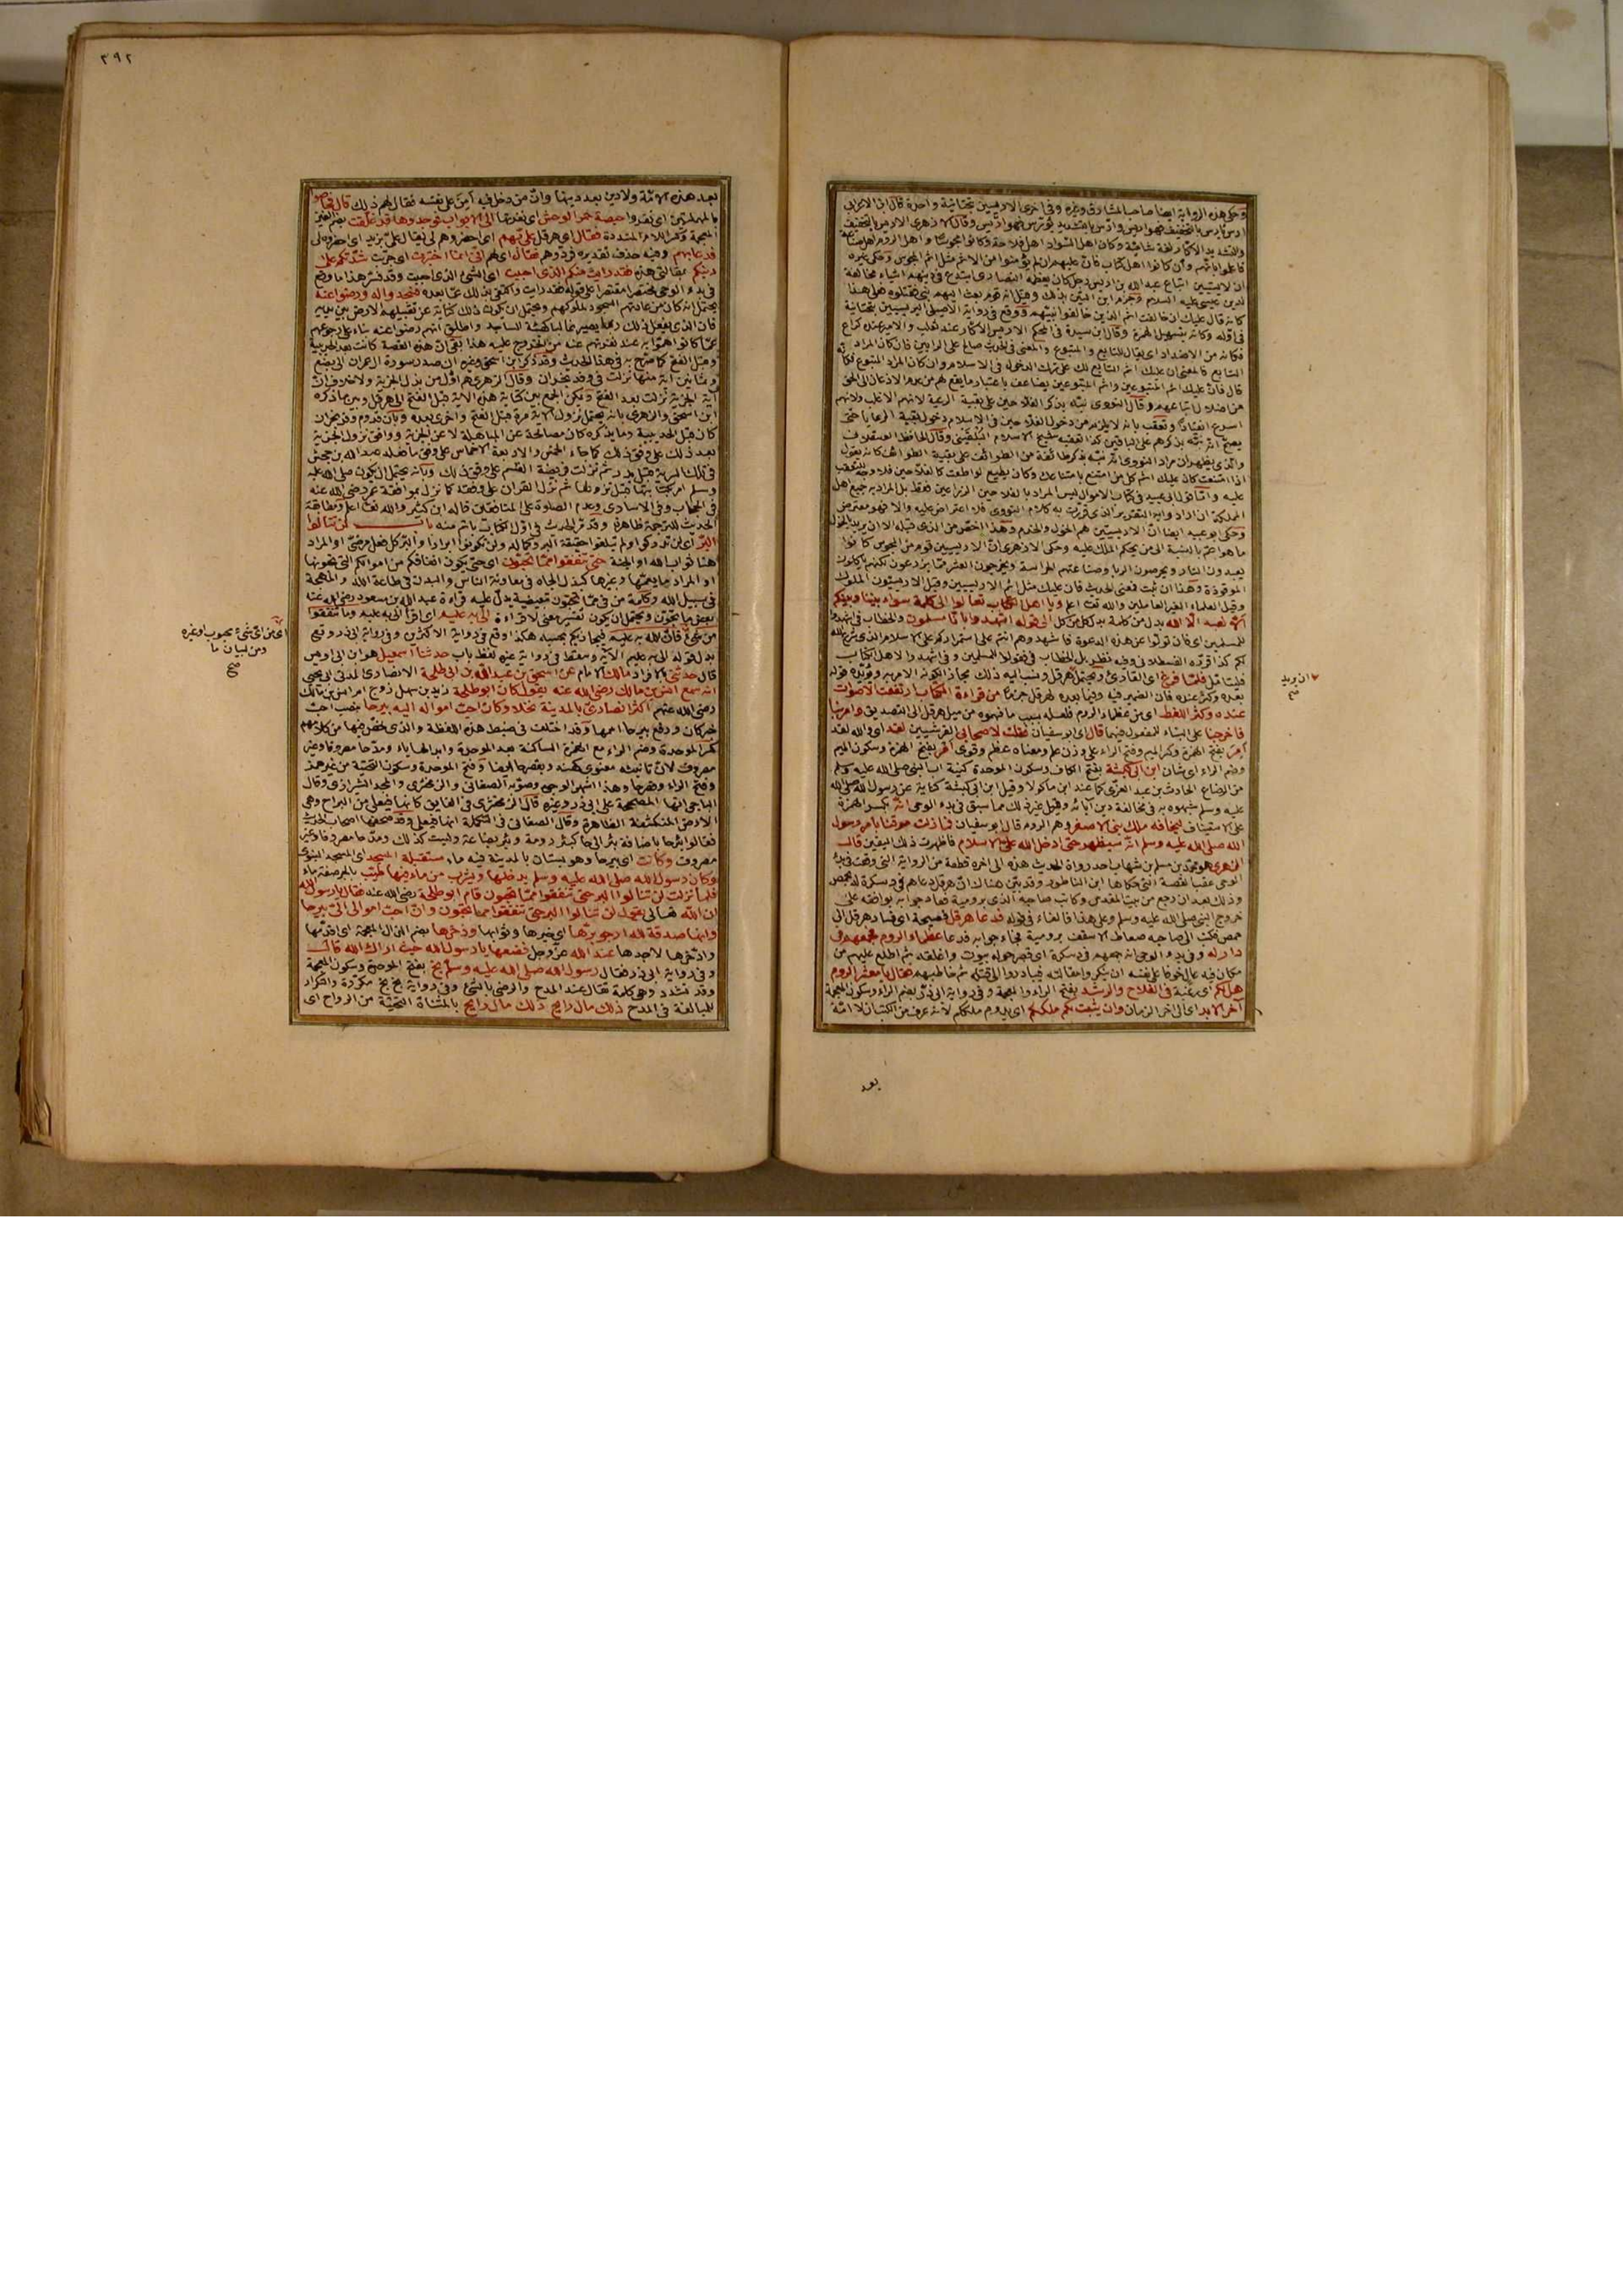 وحكى هذه الرواية ايضا صاحب المشارق وغيره وفي اخرى الاريسين بتحتانية واحدة قال ابن الاعرابي
ارس يارس بالتخفيف فهو اريس وارّس بالتشديد يؤرس فهو ارّيس وقال الازهري الاريس بالتخفيف
وبالتشديد الاكار لغة شامية وكان اهل السواد اهل فلاحة وكانوا مجوسا واهل الروم اهل صناعة
فاعلموا بانهم وان كانوا اهل كتاب فان عليهم ان لم يؤمنوا من الاثم مثل اثم المجوس وحكى غيره
ان الاريسيين اتباع عبد الله بن اريس رجل كان يعظمه النصارى ابتدع في دينهم اشياء مخالفة
لدين عيسى عليه السلام
كانه قال عليك ان خالفت اثم الذين خالفوا نبيهم ووقع في رواية الاصيلي اليريسيين بتحتانية
في اوله وكانه بتسهيل الهمزة وقال ابن سيدة في المحكم الاريس الاكار عند ثعلب والامير عند كراع
فكانه من الاضداد اى يقال للتابع والمتبوع والمعنى في الحديث صالح على الرايين فان كان المراد
التابع فالمعنى ان عليك اثم التابع لك على ترك الدخول في الاسلام وان كان المراد المتبوع فكانه
قال فان عليك اثم المتبوعين واثم المتبوعين يضاعف باعتبار ما يقع لهم من عدم الاذعان الى الحق
من اضلال اتباعهم وقال النووى نبّه بذكر الفلاحين على بقية الرعية لانهم الاغلب ولانهم
اسرع انقيادا وتعقب بانه لا يلزم من دخول الفلاحين في الاسلام دخول بقية الرعايا حتى
يصحّ انه نبّه بذكرهم على الباقين كذا تعقبه شيخ الاسلام البلقيني وقال الحافظ العسقلاني
والذى يظهر ان مراد النووى انه نبّه بذكر طائفة من الطوائف على بقية الطوائف كانه يقول
اذا امتنعت كان عليك اثم كل من امتنع بامتناعك وكان يطيع لو اطعت كالفلاحين فلا وجه للتعقب
عليه واما قول ابي عبيد في كتاب الاموال ليس المراد بالفلاحين الزراعين فقط بل المراد به جميع اهل
المملكة ان اراد به التقرير الذى قررت به كلام النووى فلا اعتراض عليه والا فهو معترض
وحكى ابو عبيد ايضا انّ الاريسيين هم الخول والخدم وهذا اخصّ من الذى قبله الا ان يريد بالخول
ما هو اعمّ بالنسبة الى من يحكم الملك عليه وحكى الازهرى انّ الاريسيين قوم من المجوس كانوا
يعبدون النار ويحرمون الزنا وصناعتهم الحراسة ويخرجون العشر مما يزرعون لكنهم ياكلون
الموقوذة وهذا ان ثبت فمعنى الحديث فان عليك مثل اثم الاريسيين وقيل الاريسيون الملوك
وقيل العلماء الغير العاملين والله تعالى اعلم ويا اهل الكتاب تعالوا الى كلمة سواء بيننا وبينكم
ان لا نعبد الّا الله بدل من كلمة بدل كل من كل الى قوله اشهدوا بانّا مسلمون والخطاب في اشهدوا
للمسلمين اى فان تولّوا عن هذه الدعوة فاشهدوهم انتم على استمراركم على الاسلام الذى شرع الله
لكم كذا قرّره القسطلاني وفيه نظر بل الخطاب في فقولوا للمسلمين وفي اشهدوا لاهل الكتاب
فليتامل فلمّا فرغ اى القارئ ويحتمل هرقل ونسب اليه ذلك مجازا لكونه الامر به ويؤيّده قوله
بعده وكثر عنده فان الضمير فيه وفيما بعده لهرقل جزما من قراءة الكتاب ارتفعت الاصوات
عنده وكثر اللغط اى من عظماء الروم فلعله بسبب ما فهموه من ميل هرقل الى التصديق وامر بنا
فاخرجنا على البناء للمفعول فيهما قال اى ابو سفيان فقلت لاصحابي القرشيين لقد اى والله لقد
امِرَ بفتح الهمزة وكسر الميم وفتح الراء على وزن علم ومعناه عظم وقوى امر بفتح الهمزة وسكون الميم
وضم الراء اى شان ابن ابي كبشة بفتح الكاف وسكون الموحدة كنية اب النبي صلى الله عليه وسلم
من الرضاع الحارث بن عبد العزّى كما عند ابن ماكولا وقيل ابن ابي كبشة كناية عن رسول الله صلى الله
عليه وسلم شبهوه به في مخالفة دين آبائه وقيل غير ذلك مما سبق في بدء الوحى انّه بكسر الهمزة
على الاستيناف ليخافه ملك بني الاصفر وهم الروم قال ابو سفيان فما زلت موقنا بامر رسول
الله صلى الله عليه وسلم انّه سيظهر حتى ادخل الله علىّ الاسلام فاظهرت ذلك اليقين قال
الزهرى هو محمد بن مسلم بن شهاب احد رواة الحديث هذه الى اخره قطعة من الرواية التي وقعت في بدء
الوحى عقيب القصة التي حكاها ابن الناطور وقد بيّن هناك انّ هرقل دعاهم في دسكرة له بحمص
وذلك بعد ان رجع من بيت المقدس وكاتب صاحبه الذى برومية فجاء جوابه يوافقه على
خروج النبي صلى الله عليه وسلم وعلى هذا فالفاء في قوله فدعا هرقل فصيحة اى فسار هرقل الى
حمص فكتب الى صاحبه ضغاطر الاسقف برومية فجاء جوابه فدعا عظماء الروم فجمعهم في
دار له وفي بدء الوحى انه جمعهم في دسكرة اى قصر حوله بيوت واغلقه ثم اطلع عليهم من
مكان فيه عال خوفا على نفسه ان ينكروا مقالته فيبادروا الى قتله ثم خاطبهم فقال يا معشر الروم
هل لكم اى رغبة في الفلاح والرشد بفتح الراء والمعجمة وفي رواية ابي ذرّ بضم الراء وسكون المعجمة
آخر الابد اى الى اخر الزمان وان يثبت لكم ملككم اى يدوم ملككم لانه عرف من الكتب ان لا امّة
ان يريد
صح
بعد
٣٩٢
بعد هذه الامّة ولا دين بعد دينها وانّ من دخل فيه آمِنَ على نفسه فقال لهم ذلك قال فحاصوا
بالمهملتين اى نفروا حيصة حمر الوحش اى نفرتها الى الابواب فوجدوها قد غلّقت بضم الغين
المعجمة وكسر اللام المشددة فقال اى هرقل علىّ بهم اى احضروهم لي يقال علىّ بزيد اى احضروه لي
فدعا بهم وفيه حذف تقديره فردّوهم فقال اى لهم انى انما اختبرت اى جرّبت شدّتكم على
دينكم بمقالتي هذه فقد رايت منكم الذى احببت اى الشيء الذى احببت وقد فسّر هذا ما وقع
في بدء الوحى مختصرا مقتصرا على قوله فقد رايت واكتفى بذلك عمّا بعده فسجدوا له ورضوا عنه
يحتمل انه كان من عادتهم السجود لملوكهم ويحتمل ان يكون ذلك كناية عن تقبيلهم الارض بين يديه
فان الذى يفعل ذلك ربما يصير غالبا كهيئة الساجد واطلق انهم رضوا عنه بناء على رجوعهم
عمّا كانوا همّوا به عند نفرتهم عنه من الخروج عليه هذا بقى انّ هذه القصة كانت بعد الحديبية
وقبل الفتح كما صرّح به في هذا الحديث وقد ذكر ابن اسحق وغيره ان صدر سورة ال عمران الى بضع
وثمانين آية منها نزلت في وفد نجران وقال الزهرى هم اوّل من بذل الجزية ولا خلاف انّ
آية الجزية نزلت بعد الفتح ويمكن الجمع بين كتابة هذه الاية قبل الفتح الى هرقل وبين ما ذكره
ابن اسحق والزهرى بانه يحتمل نزول الاية مرة قبل الفتح واخرى بعده وبان قدوم وفد نجران
كان قبل الحديبية وما بذلوه كان مصالحة عن المباهلة لا عن الجزية ووافق نزول الجزية
بعد ذلك على وفق ذلك كما جاء الخمس والاربعة الاخماس على وفق ما فعله عبد الله بن جحش
في تلك السرية قبل بدر ثم نزلت فريضة القسم على وفق ذلك وبانه يحتمل ان يكون صلى الله عليه
وسلم امر بكتابتها قبل نزولها ثم نزل القران على وفقه كما نزل بموافقة عمر رضى الله عنه
في الحجاب وفي الاسارى وعدم الصلوة على المنافقين قاله ابن كثير والله تعالى اعلم ومطابقة
الحديث للترجمة ظاهرة وقد مرّ الحديث في اوّل الكتاب باتم منه باب لن تنالوا
البرّ اى لن تدركوا ولم تبلغوا حقيقة البر وكماله ولن تكونوا ابرارا والبر كل فعل مرضىّ او المراد
هنا ثواب الله او الجنة حتى تنفقوا ممّا تحبّون اى حتى يكون انفاقكم من اموالكم التي تحبونها
او المراد ما يعمّها وغيرها كبذل الجاه في معاونة الناس والبدن في طاعة الله والمهجة
في سبيل الله وكلمة من في ممّا تحبّون تبعيضية يدلّ عليه قراءة عبد الله بن مسعود رضى الله عنه
بعض ما تحبّون ويحتمل ان يكون تفسير معنى لا قراءة الى به عليم اى اقرأ الى به عليم وما تنفقوا
من شئ فانّ الله به عليم فيجازيكم بحسبه هكذا وقع في رواية الاكثرين وفي رواية ابي ذر وقع
بدل قوله الى به عليم الآية وسقط في رواية غيره لفظ باب حدثنا اسمعيل هو ابن ابي اويس
قال حدثني بالافراد مالك الامام عن اسحق بن عبد الله بن ابي طلحة الانصارى المدني ابي يحيى
انه سمع انس بن مالك رضى الله عنه يقول كان ابو طلحة زيد بن سهل زوج ام انس بن مالك
رضى الله عنهم اكثر انصارىّ بالمدينة نخلا وكان احبّ امواله اليه بيرحا بنصب احبّ
خبر كان ورفع بيرحا اسمها وقد اختلف في ضبط هذه اللفظة والذى تلخّص فيها من كلامهم
كسر الموحدة وضم الراء مع الهمزة الساكنة بعد الموحدة وابدالها ياء ومدّ حا مصروفا وغير
مصروف لانّ تانيثه معنوى كهند وبقصرها ايضا وفتح الموحدة وسكون التحتية من غير همز
وفتح الراء وضمها وهذا اشهر الوجوه وصوّبه الصغانى والزمخشرى والمجد الشيرازى وقال
الباجى انها المصححة على ابي ذر وغيره قال الزمخشرى في الفايق كانها فيعلى من البراح وهي
الارض المنكشفة الظاهرة وقال الصغانى في التكملة انها فيعلى وقد صحفها اصحاب الحديث
فقالوا بئر حا باضافة بئر الى حا كبئر رومة وبئر بضاعة وليست كذلك ومدّ حا مصروفا وغير
مصروف وكانت اى بيرحا وهو بستان بالمدينة فيه ماء مستقبلة المسجد اى المسجد النبوى
وكان رسول الله صلى الله عليه وسلم يدخلها ويشرب من ماء فيها طيّب بالجر صفة ماء
فلما نزلت لن تنالوا البر حتى تنفقوا ممّا تحبون قام ابو طلحة رضى الله عنه فقال يا رسول الله
ان الله تعالى يقول لن تنالوا البر حتى تنفقوا مما تحبّون وانّ احبّ اموالى الىّ بيرحا
وانها صدقة لله ارجو برّها اى خيرها وثوابها وذخرها بضم الذال المعجمة اى اقدّمها
وادّخرها لاجدها عند الله عزّ وجل فضعها يا رسول الله حيث اراك الله قال
وفي رواية ابي ذر فقال رسول الله صلى الله عليه وسلّم بخ بفتح الموحدة وسكون المعجمة
وقد تشدد وهي كلمة تقال عند المدح والرضى بالشئ وفي رواية بخ بخ مكرّرة والتكرار
للمبالغة في المدح ذلك مال رابح ذلك مال رايح بالمثناة التحتية من الرواح اى
اى من اىّ شئ محبوب او غيره
ومن لبيان ما
صح